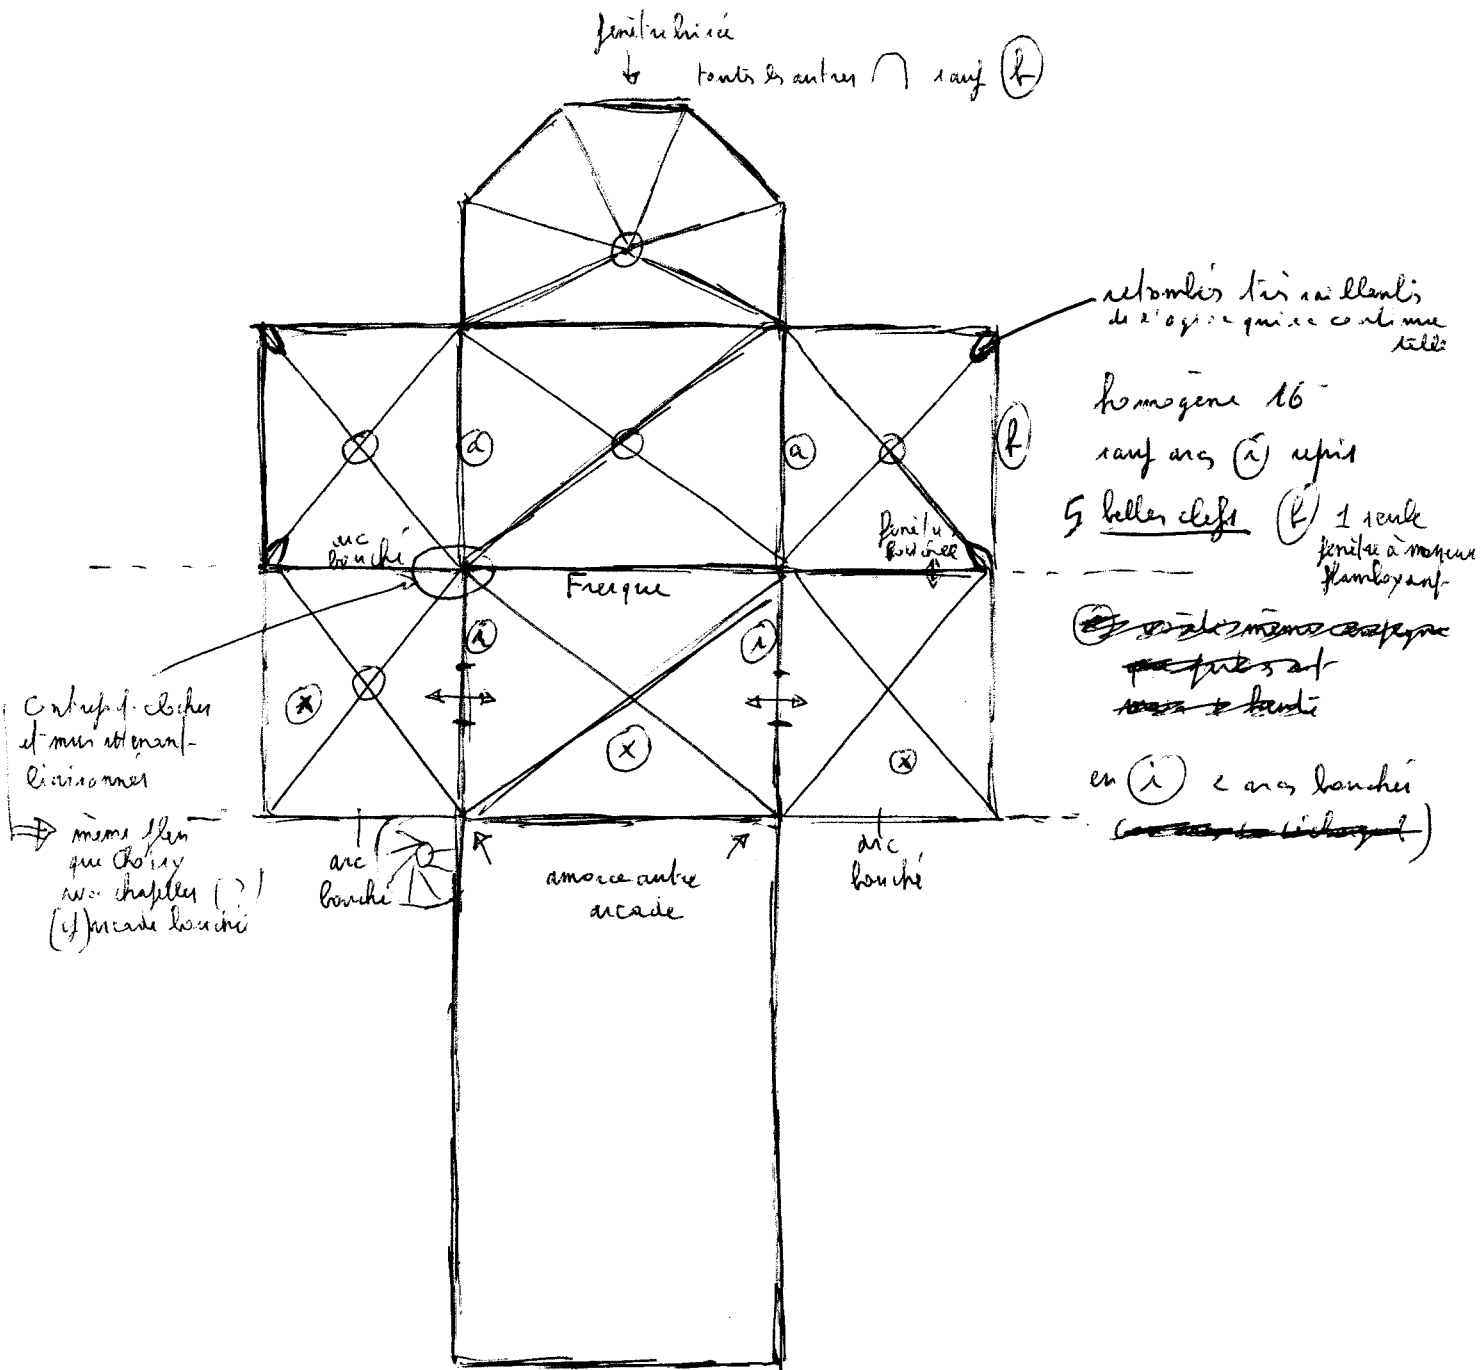 fenêtre brisée
toutes les autres ∩ sauf (f)
retombées très saillantes
de l'ogive qui se continue
homogène 16
sauf arcs (i) repris
5 belles clefs (f) 1 seule
fenêtre à meneau
flamboyant
(a)
(a)
(f)
arc
bouché
fenêtre
bouchée
Fresque
(i)
(i)
(x)
(x)
(x)
contrefort clocher
et murs attenant
liaisonnés
même plan
que Choisy
avec chapelles (?)
(cf) arcade bouchée
en (i) 2 arcs bouchés
arc
bouché
amorce autre
arcade
arc
bouché